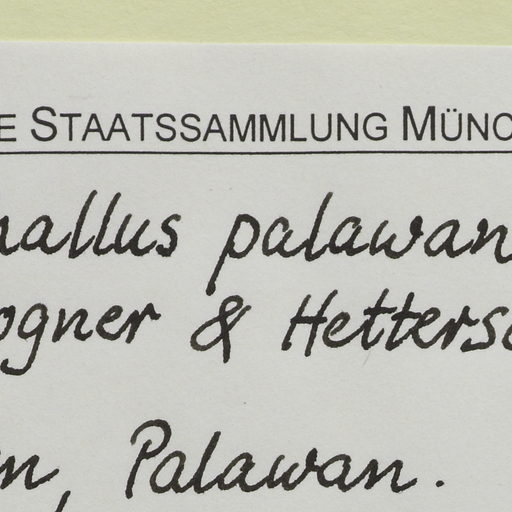 E STAATSSAMMLUNG MÜNC
allus palawan
ogner & Hetters
n, Palawan.